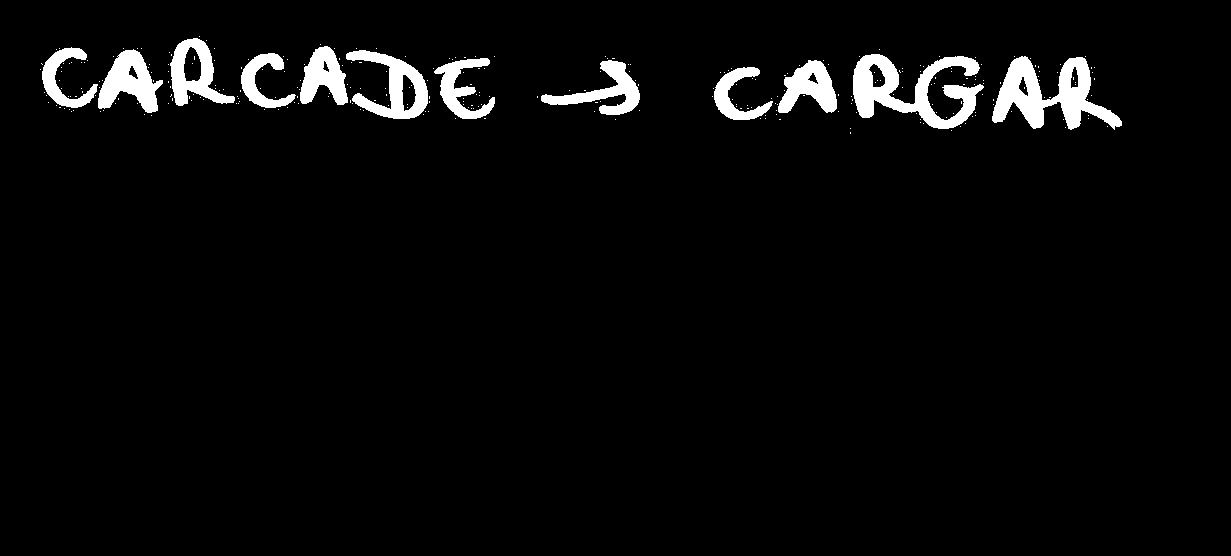 CARCADE → CARGAR